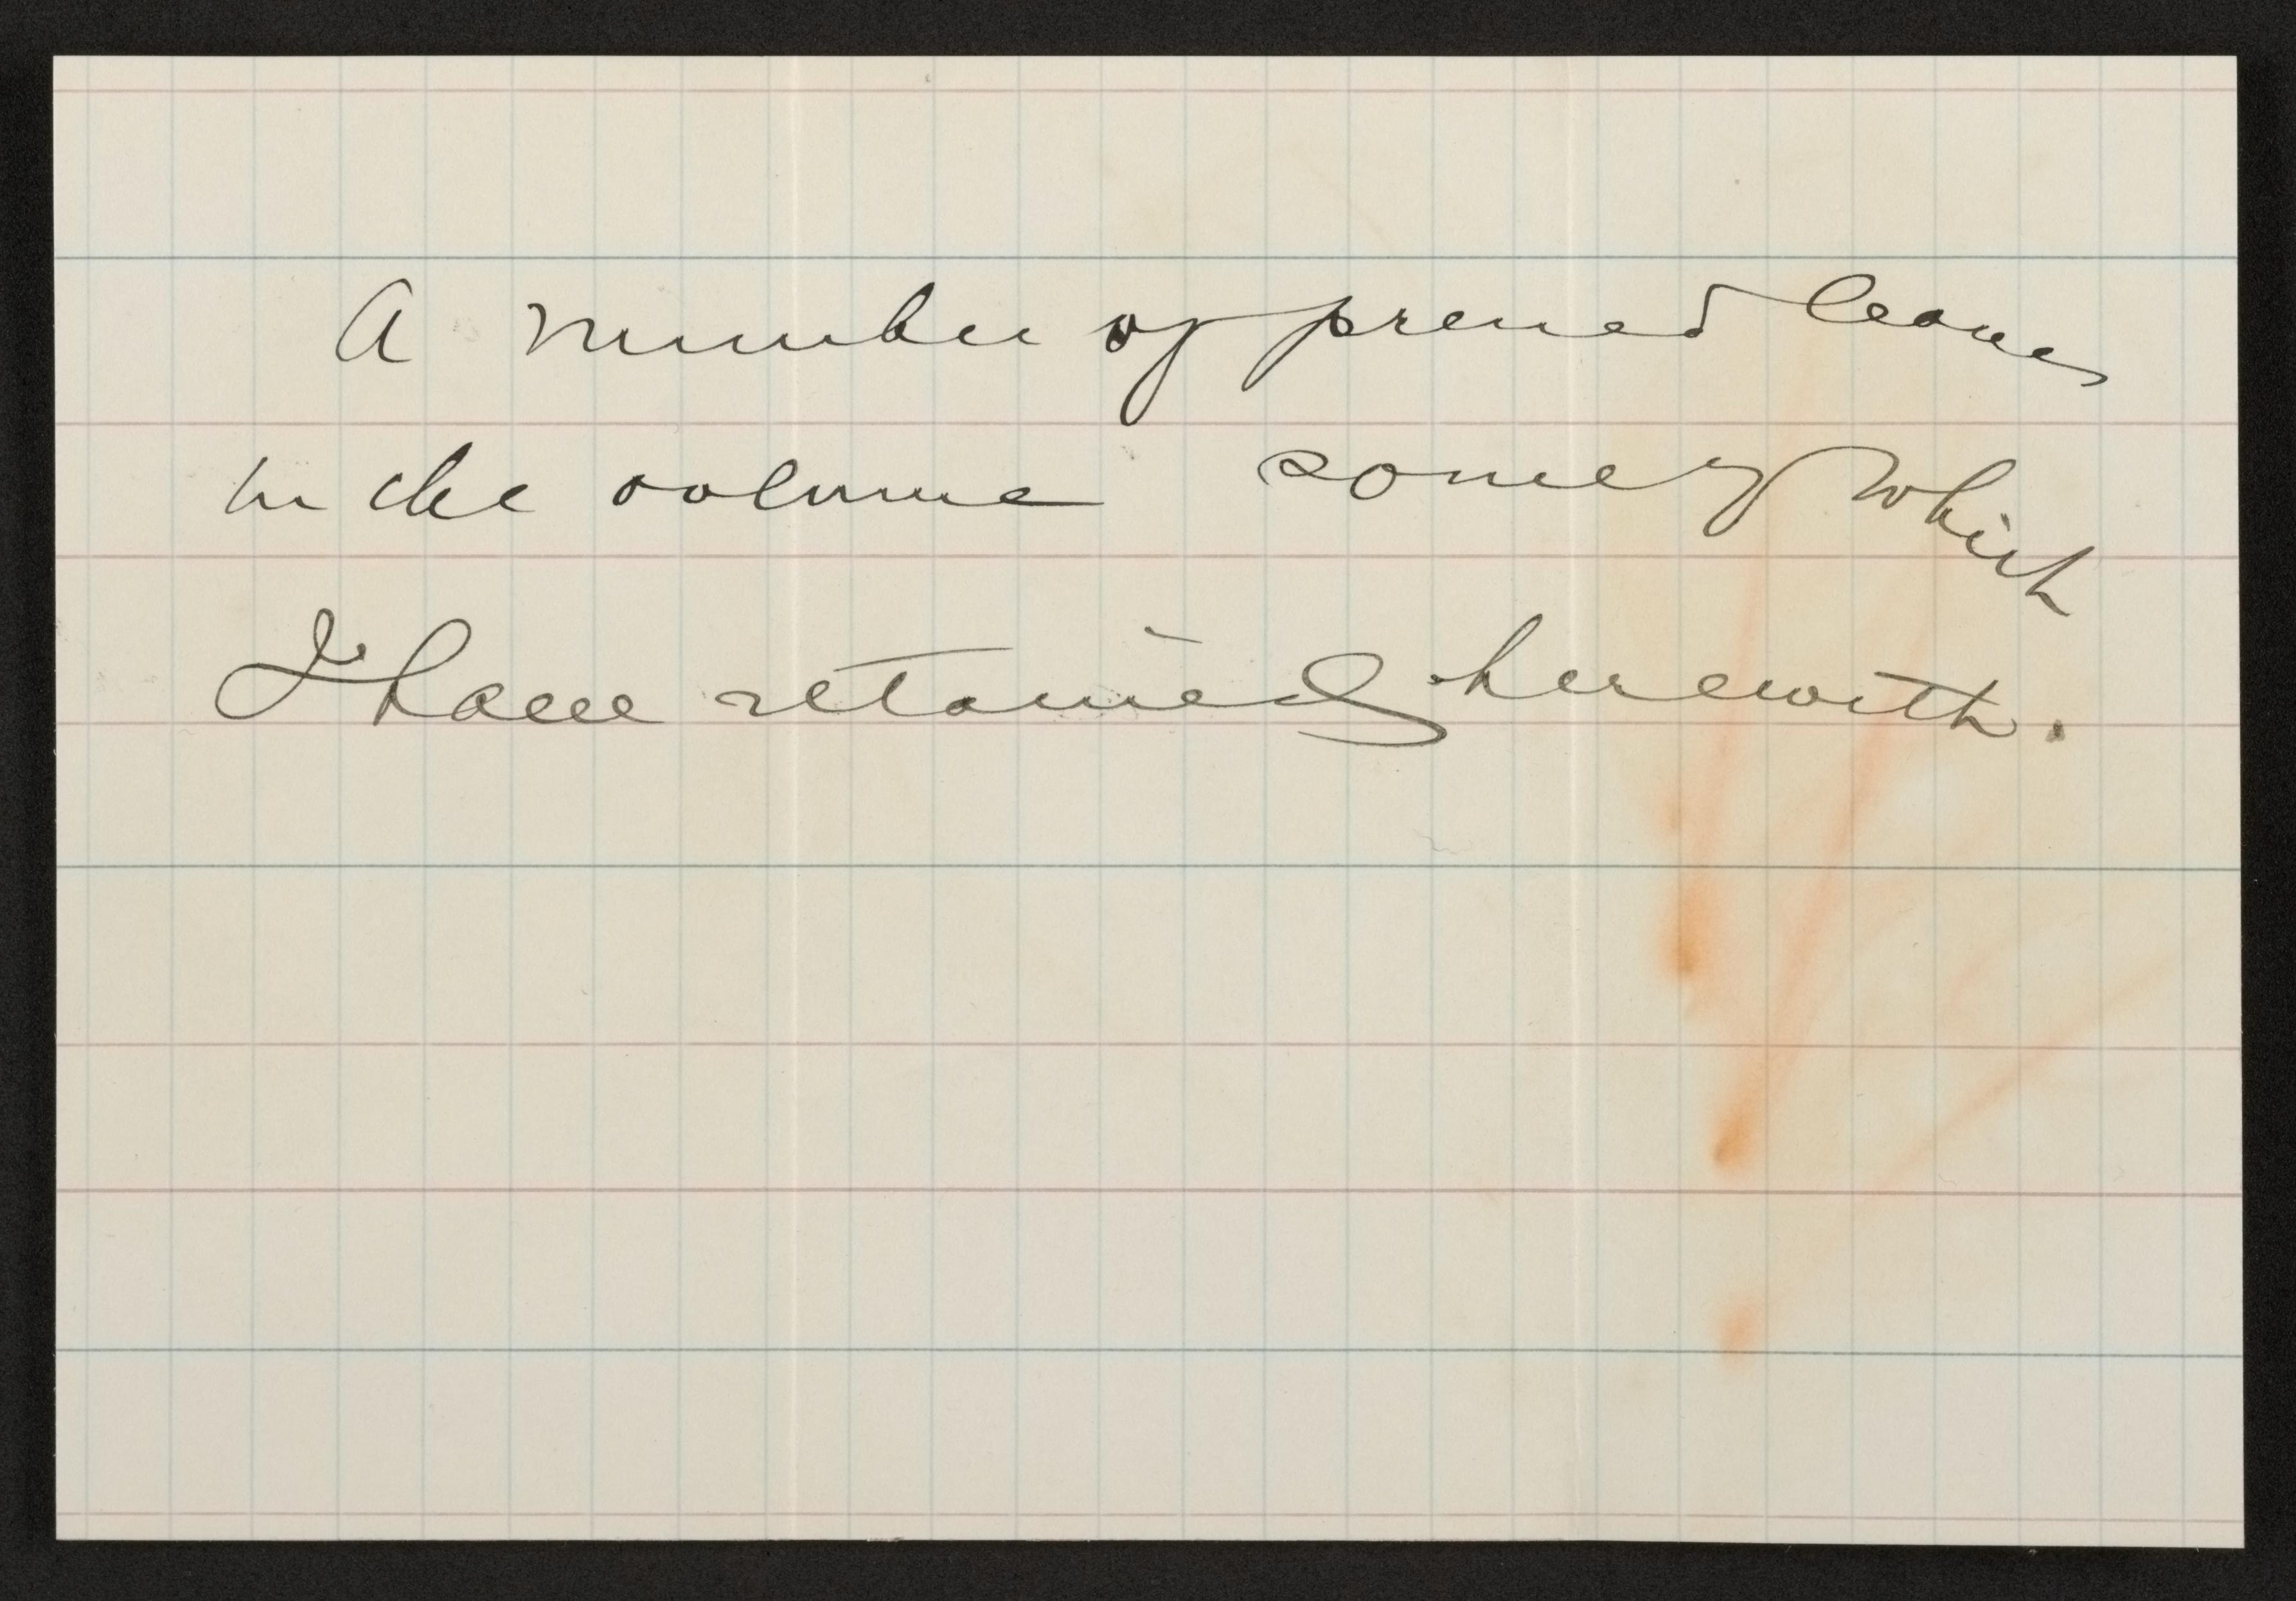 A number of pressed leaves
in the volume some of which
I have retained herewith.